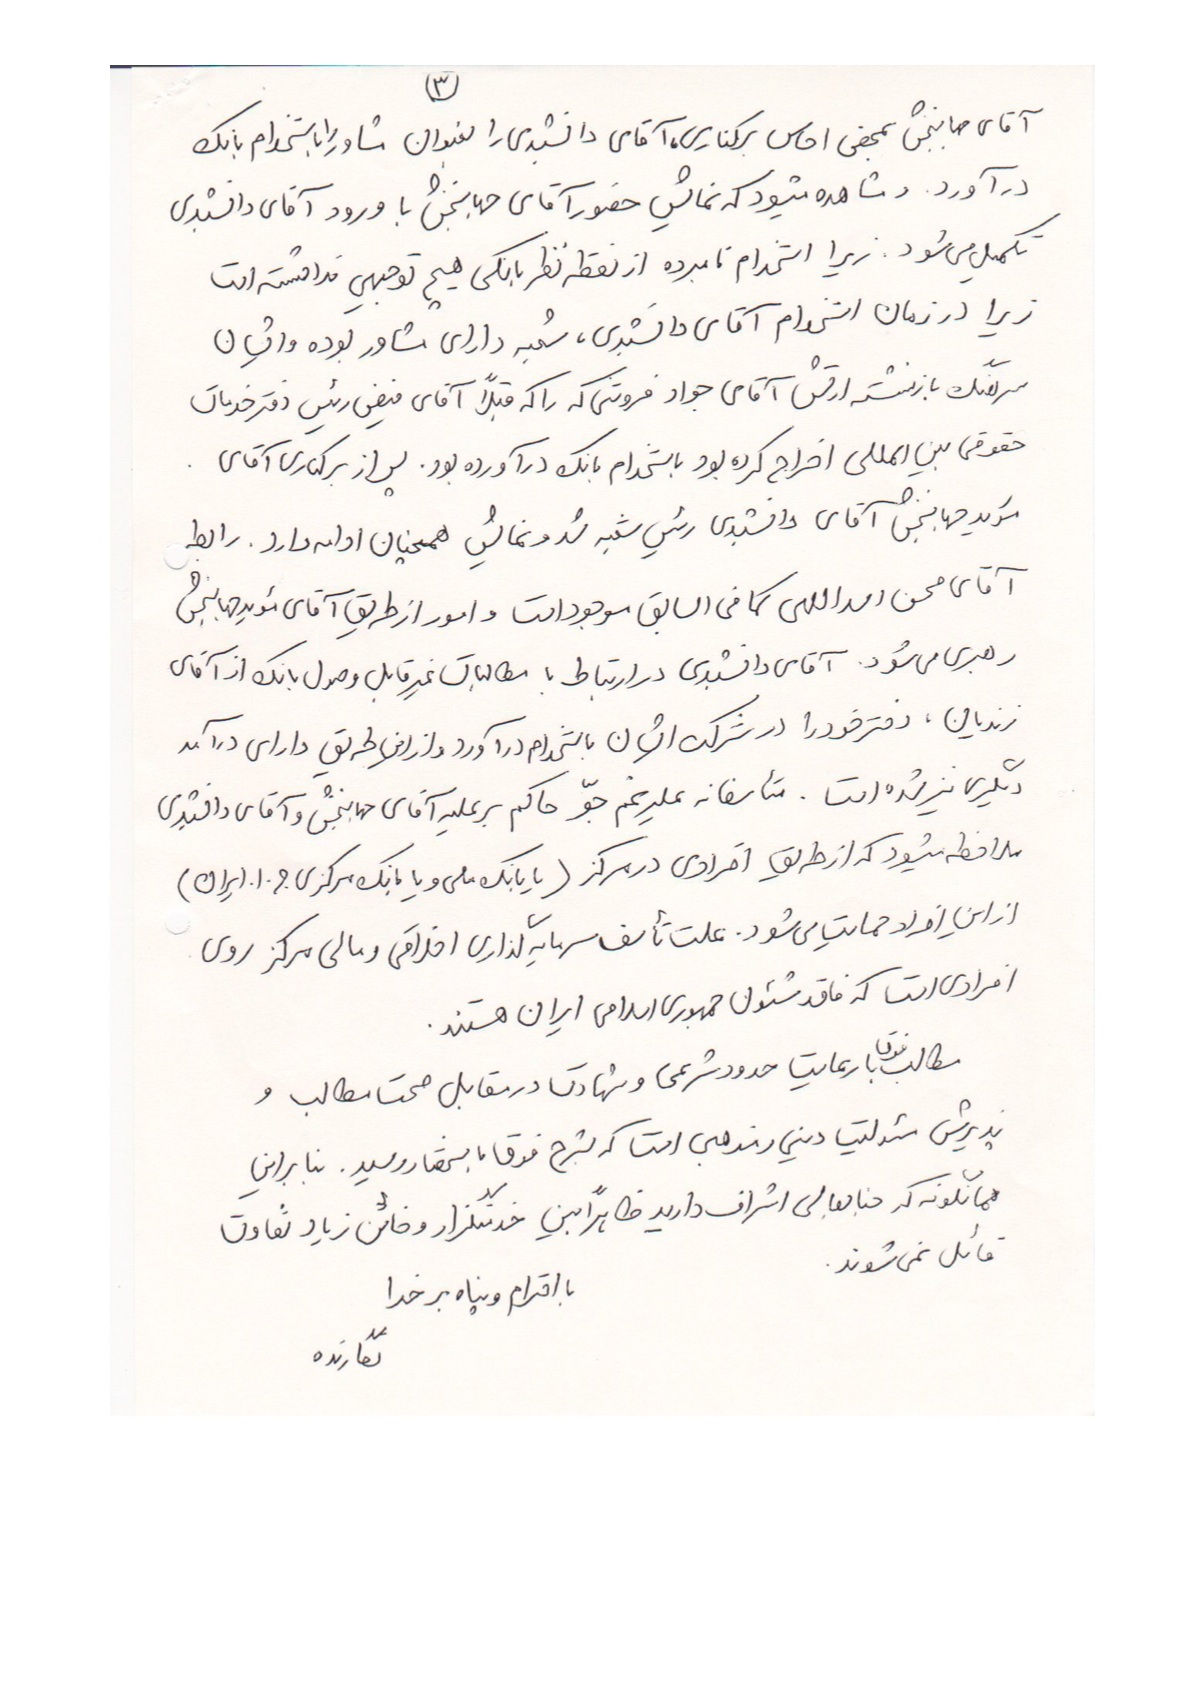 ۳
آقای جهانبخش بمحض احساس برکناری، آقای دانشبدی را بعنوان مشاور باستخدام بانک
درآورد. مشاهده میشود که نمایش حضور آقای جهانبخش با ورود آقای دانشبدی
تکمیل می‌شود. زیرا استخدام نامبرده از نقطه نظر بانکی هیچ توجیهی نداشته است
زیرا در زمان استخدام آقای دانشبدی، شعبه دارای مشاور بوده و ایشان
سرهنگ بازنشسته ارتش آقای جواد فروتنی که را که قبلاً آقای فیضی رئیس دفتر خدمات
حقوقی بین المللی اخراج کرده بود باستخدام بانک درآورده بود. پس از برکناری آقای
مؤید جهانبخش آقای دانشبدی رئیس شعبه شد و نمایش همچنان ادامه دارد. رابط
آقای محسن اسداللهی کمافی السابق موجود است و امور از طریق آقای مؤید جهانبخش
رهبری می‌شود. آقای دانشبدی در ارتباط با مطالبات غیرقابل وصول بانک از آقای
زندیان، دفتر خود را در شرکت ایشان باستخدام درآورد و از این طریق دارای درآمد
دیگری نیز شده است. متأسفانه علیرغم جوّ حاکم بر علیه آقای جهانبخش و آقای دانشبدی
ملاحظه میشود که از طریق افرادی در مرکز (یا بانک ملی و یا بانک مرکزی ج.ا.ایران)
از این افراد حمایت می‌شود. علت تأسف سرمایه گذاری اخلاقی و مالی مرکز روی
افرادی است که فاقد شئون جمهوری اسلامی ایران هستند.
مطالب فوق با رعایت حدود شرعی و شهادت در مقابل صحت مطالب و
پذیرش مسئولیت دینی و مذهبی است که بشرح فوق باستحضار رسید. بنابراین
همانگونه که جنابعالی اشراف دارید ظاهراً بین خدمتگزار و خائن زیاد تفاوت
قائل نمی‌شوند.
با احترام و پناه بر خدا
نگارنده